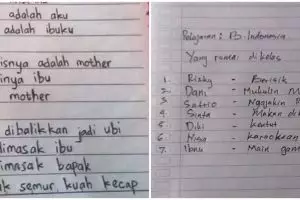 adalah aku
adalah ibuku
isnya adalah mother
inya ibu
mother
dibalikkan jadi ubi
dimasak ibu
imasak bapak
ak semur, kuah kecap
Pelajaran : B. Indonesia
Yang ramai dikelas
1. Rizky - Berisik
2. Dani - Mukulin M
3. Satrio - Ngajakin
4. Sinta - Makan di
5. Diki - kentut
6. - karaokean
7. Ibnu - Main gam